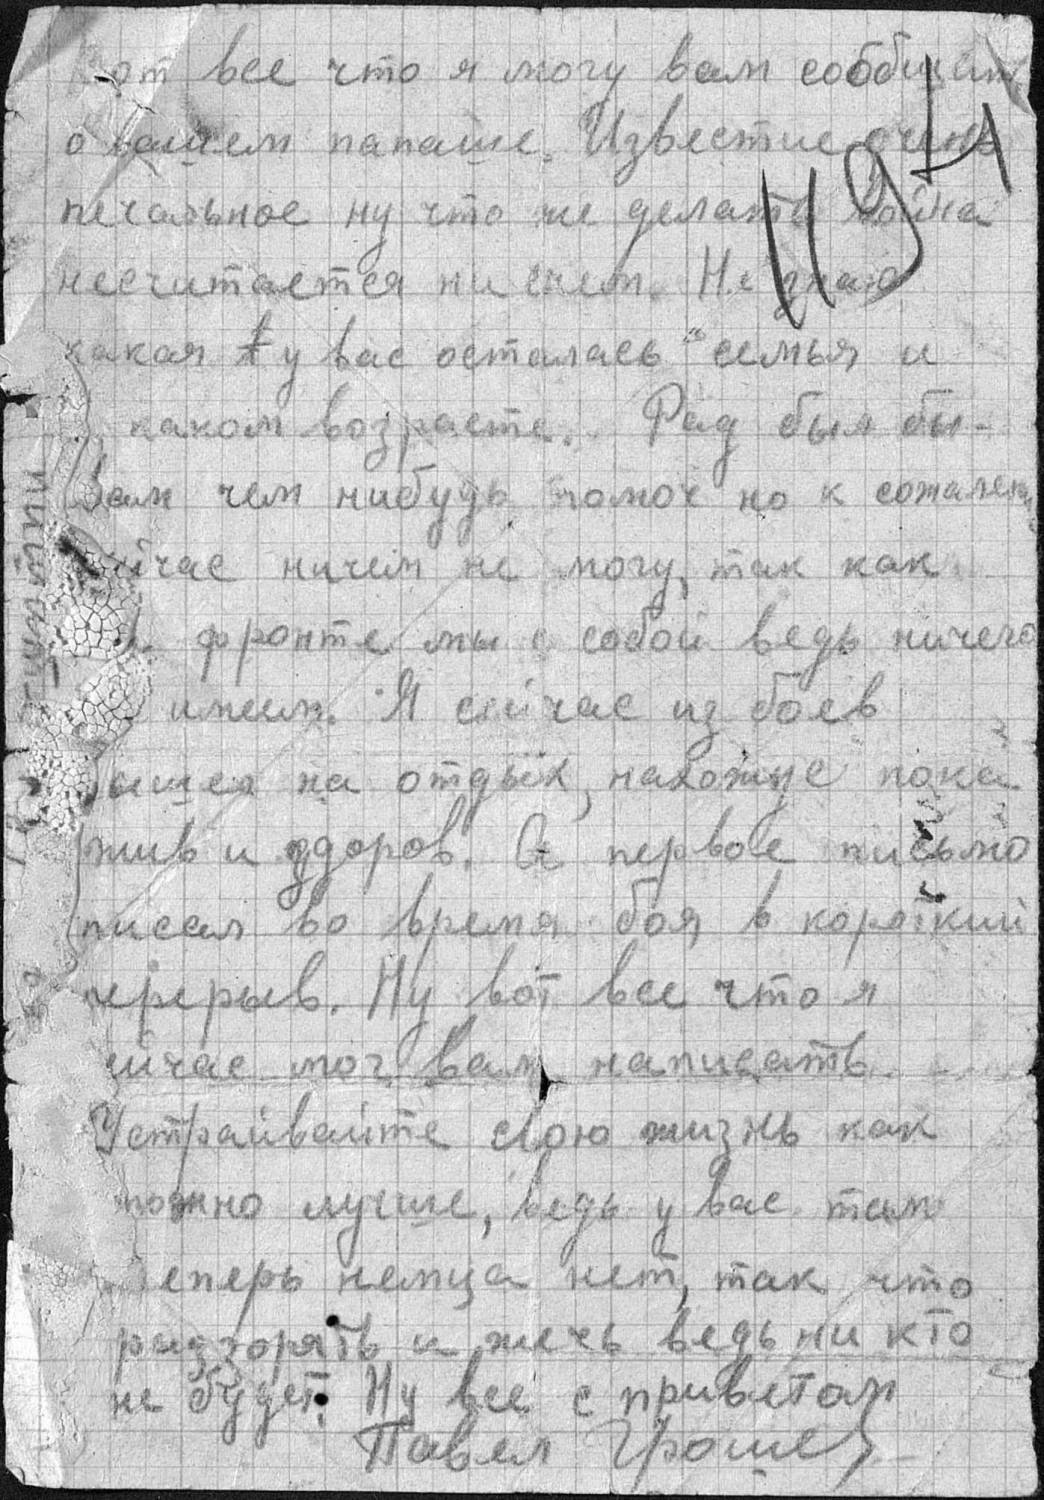 Вот все что я могу вам сообщить
о вашем папаше. Известие очень
печальное ну что же делать война
несчитается ни счем. Не знаю
какая у вас осталась семья и
каком возрасте. Рад был бы-
Вам чем нибудь помоч но к сожален
йчас ничем не могу, так как
фронте мы с собой ведь ничего
имеим. Я сейчас из боев
вышел на отдых, нахожус пока
жив и здоров. А первое письмо
писал во время боя в короткий
перерыв. Ну вот все что я
ийчас мог вам написать.
Устраивайте свою жизнь как
можно лучше, ведь у вас там
теперь немца нет, так что
раззорять и жечь ведь ни кто
не будет. Ну все с приветом
Павел